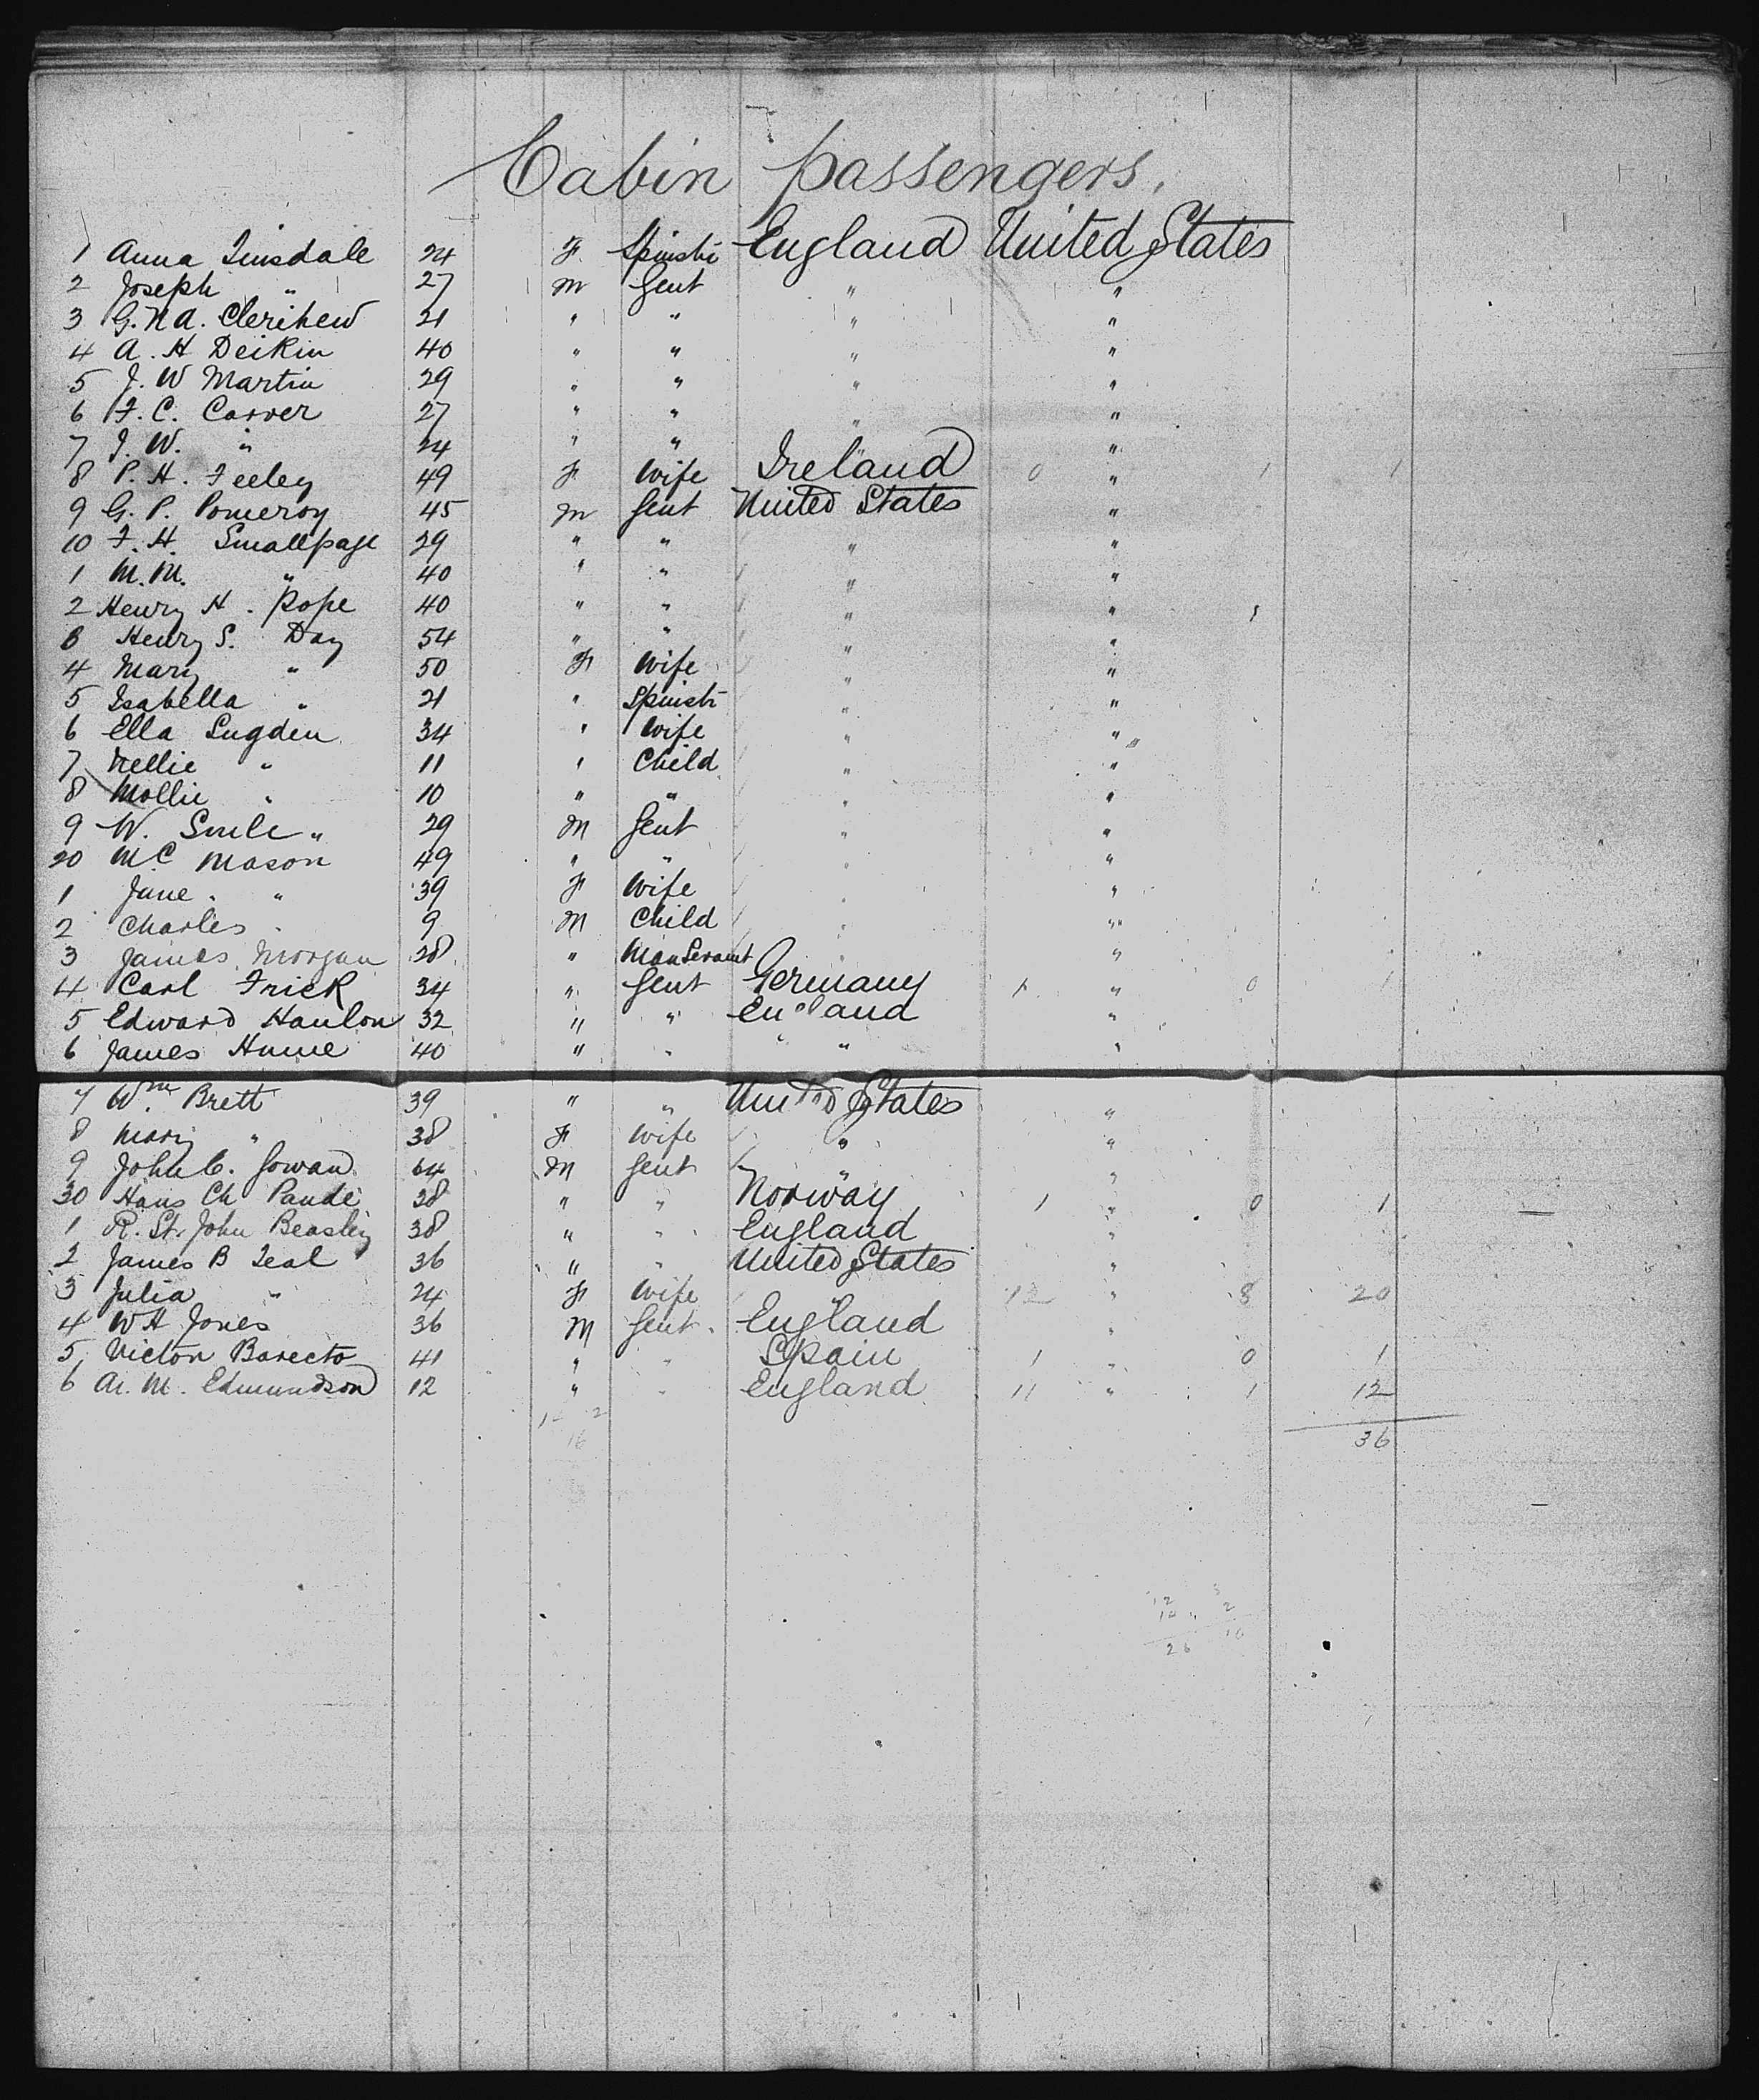 Cabin passengers.
1 Anna Tinsdale 24 F. Spinstr England United States
2 Joseph " 27 M Gent " "
3 G. N. A. Clerihew 21 " " " "
4 A. H Deikin 40 " " " "
5 J. W Martin 29 " " " "
6 F. C. Carver 27 " " " "
7 J. W. " 24 " " " "
8 P. H. Feeley 49 F Wife Ireland 0 " 1 1
9 G. P. Pomeroy 45 M Gent United States "
10 F. H. Smallpage 29 " " " "
1 M. M. " 40 " " " "
2 Henry H. Pope 40 " " " "
3 Henry S. Day 54 " " " "
4 Mary " 50 F Wife " "
5 Isabella " 21 " Spinstr " "
6 Ella Sugden 34 " Wife " "
7 Nellie " 11 " Child " "
8 Mollie " 10 " " " "
9 W. " 29 M Gent " "
20 M C Mason 49 " " " "
1 Jane " 39 F Wife " "
2 Charles " 9 M Child " "
3 James Morgan 28 " Man Servant " "
4 Carl Frick 34 " Gent Germany 1 " 0 1
5 Edward Hanlon 32 " " England "
6 James Hume 40 " " " "
7 Wm. Brett 39 " " United States "
8 Mary " 38 F Wife " "
9 John C. Gowan 64 M Gent " "
30 Hans Ch Pande 28 " " Norway 1 " 0 1
1 R. St. John Beasley 38 " " England "
2 James B Teal 36 " " United States "
3 Julia " 24 F Wife " 12 " 8 20
4 W H Jones 36 M Gent. England "
5 Victon Barecto 41 " " Spain 1 " 0 1
6 M. Edmundson 12 " " England 11 " 1 12
36
16
12
26 10